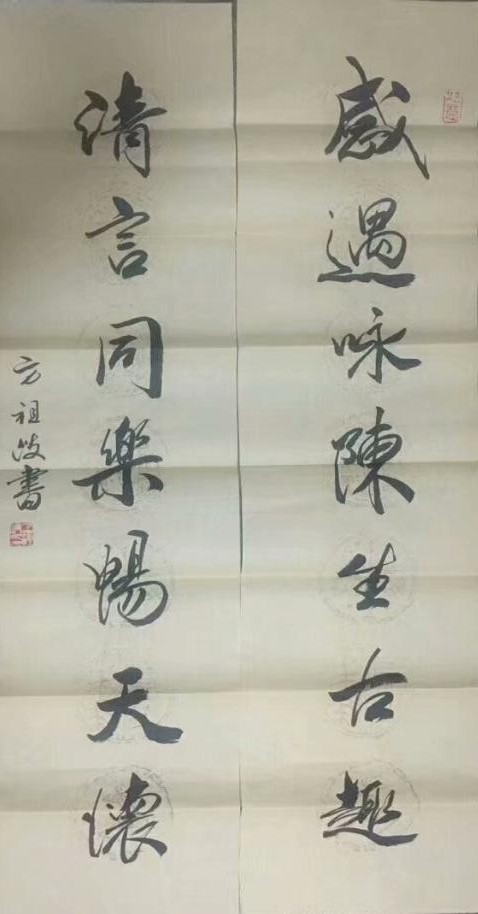 感遇咏陳生古趣
清言同樂暢天懷
方祖岐書